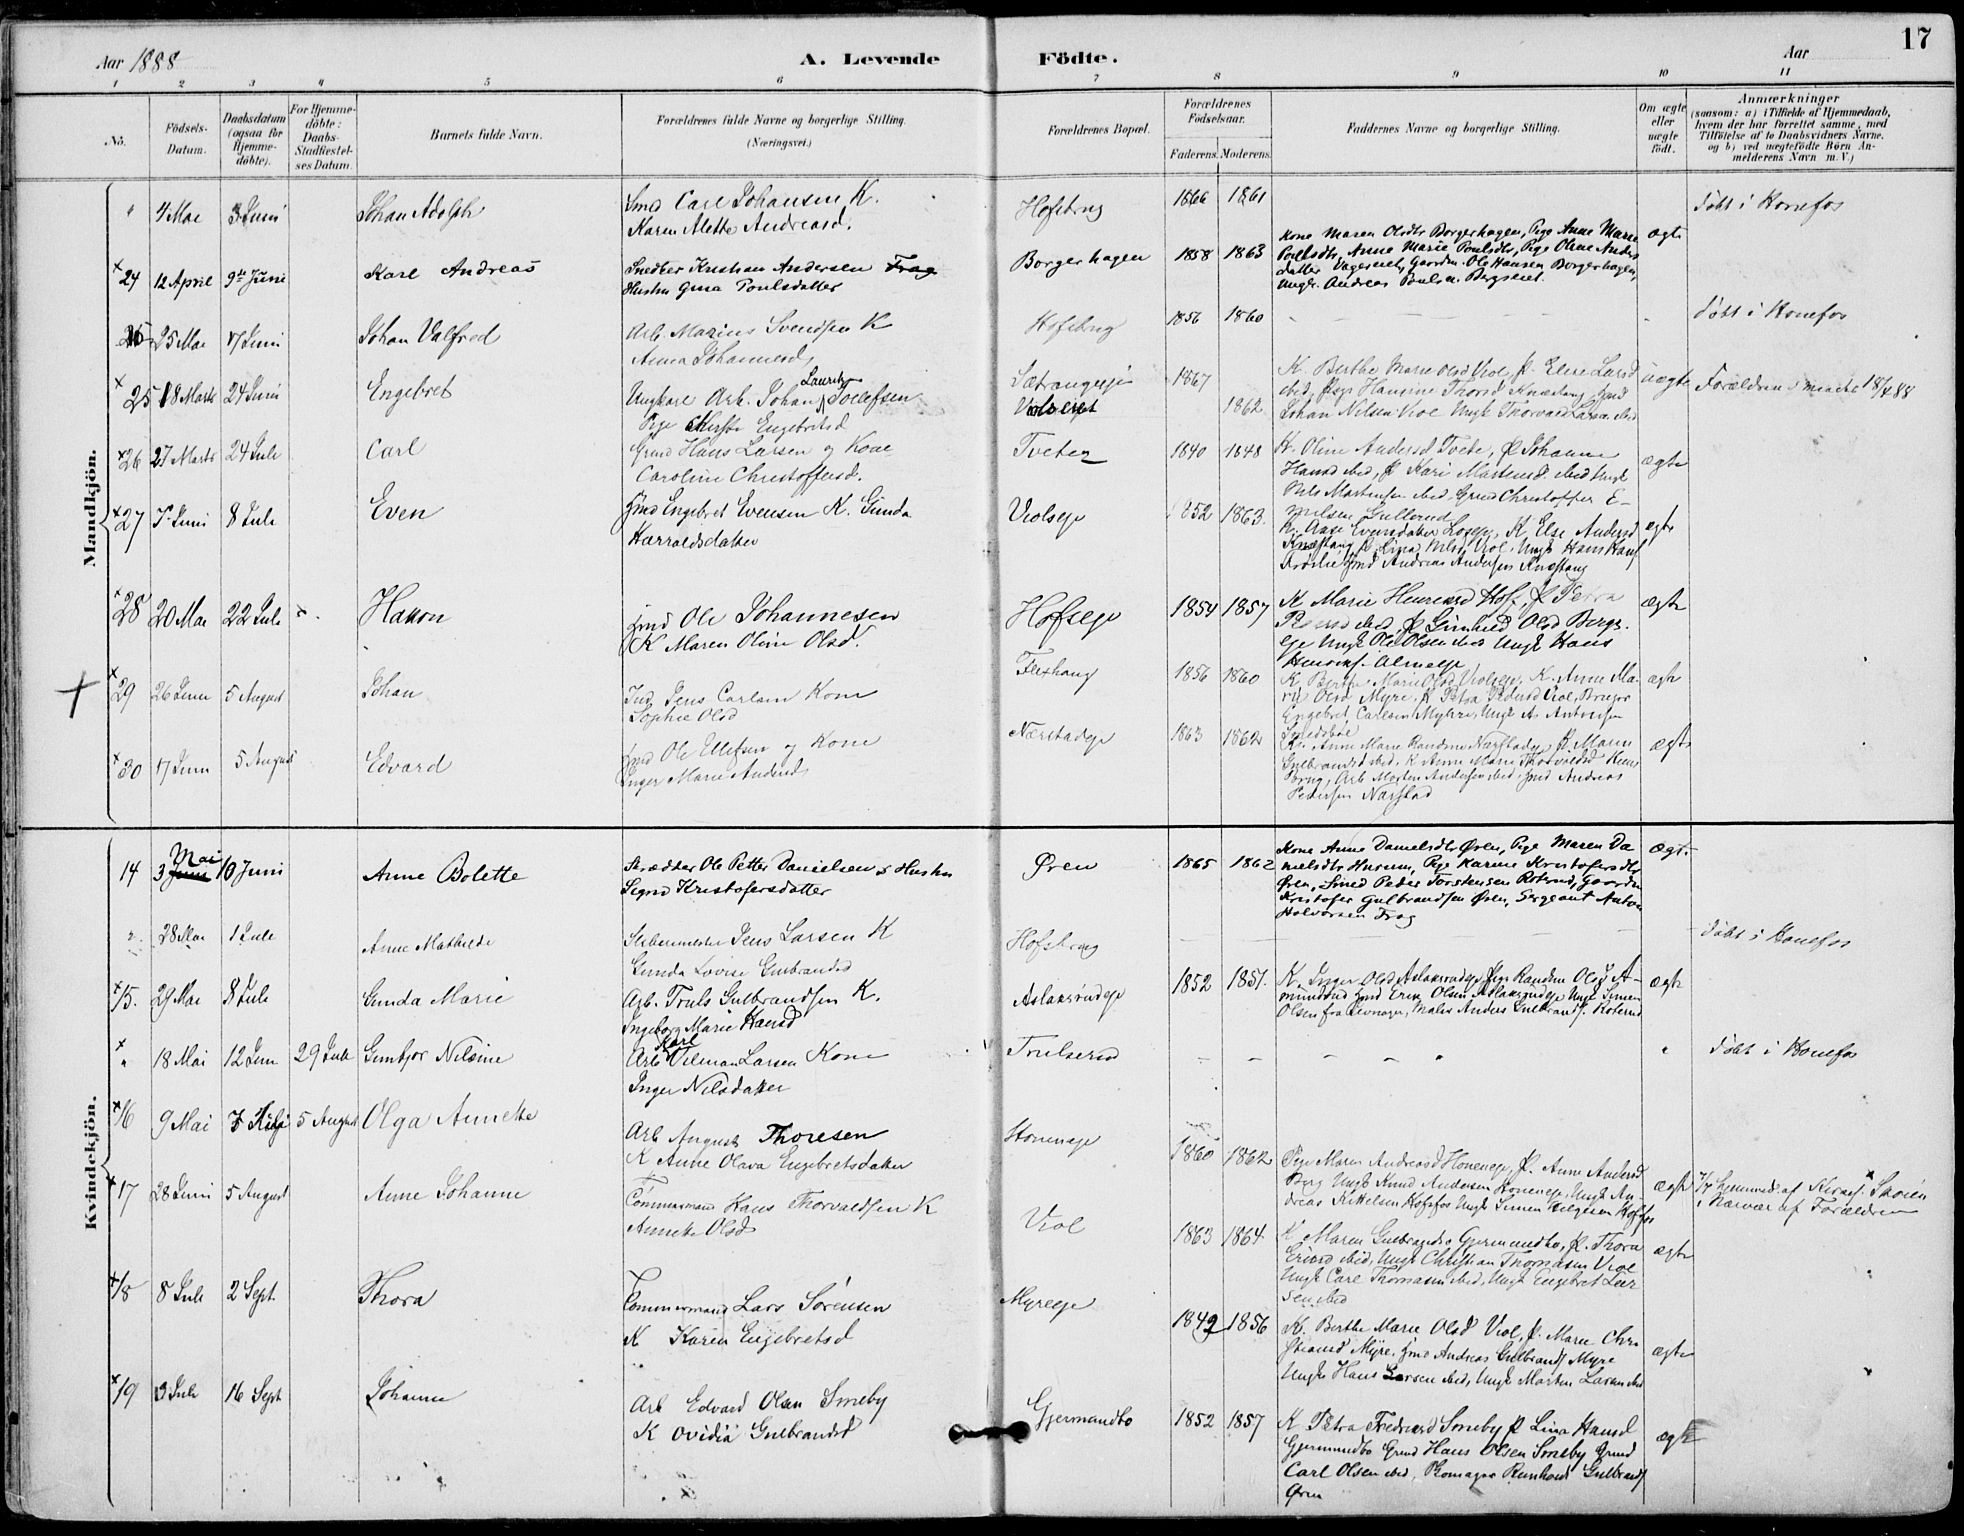 17
Aar 1888
A. Levende
Födte.
Aar
1 2 3 4 5 6 7 8 9 10 11
No.
Födsels-Datum.
Daabsdatum (ogsaa for Hjemme-döbte).
For Hjemme-döbte: Daabs-Stadfæstel-ses Datum.
Barnets fulde Navn.
Forældrenes fulde Navne og borgerlige Stilling.
(Næringsvei.)
Forældrenes Bopæl.
Forældrenes Födselsaar.
Faderens. Moderens.
Faddernes Navne og borgerlige Stilling.
Om ægte eller uægte födt.
Anmærkninger
(saasom: a) i Tilfælde af Hjemmedaab,
hvem der har forrettet samme, med
Tilföielse af to Daabsvidners Navne.
og b) ved uægtefödte Börn An-
melderens Navn m. V.)
Mandkjön.
" 4 Mai 3 Juni Johan Adolph
Smed Carl Johansen K.
Karen Alette Andreasd.
Hofsbrug 1866 1861 Döbt i Honefos
24 12 April 9de Juni Karl Andreas
Snedker Kristian Andersen Frog
Hustru Gina Poulsdatter
Borgerhagen 1858 1863
Kone Maren Olsdtr Borgerhagen, Pige Anne Marie
Poulsdtr, Anne Marie Poulsdtr, Pige Oline Anders
datter Vageriet, Gaardm. Ole Hansen Borgerhagen,
Ungk. Andreas Poulsen Bergseiet.
ægte
25 Mai 17 Juni Johan Valfred
Arb. Marius Svendsen K
Anna Johannesd.
Hofsbrug 1856 1860 Döbt i Honefos
25 18 Marts 24 Juni Engebret
Ungkarl Arb. Johan Lauritz Joelefsen
Pige Kirste Engebretsd
Sætrangeje 1867
Violseiet 1862
K. Berthe Marie Olsd Viol, P. Eline Larsd
ibid, Pige Hansine Thorsd Knestang, Gmd
Johan Nilsen Viol Ungk Thorvard Larsen ibid
uægte
Forældrene 18/4 88
26 27 Marts 24 Juli Carl
Gmd Hans Larsen og Kone
Caroline Christoffersd.
Tveten 1840 1848
K. Oline Andersd Tvete, P. Johanne
Hansd ibid, P. Kari Martensd. ibid Ungk
Nils Martensen ibid, Gmd Christoffer E-
milsen Gullerud
ægte
27 7 Juni 8 Juli Even
Jmd Engebret Evensen K. Gunda
Harraldsdatter
Violseje 1852 1863.
K. Aase Evensdatter Loseje, K Else Andersd
Knestang P. Lina Nilsd Viol. Ungk Hans Hans
Jmd Andreas Andersen Knestang
ægte
28 20 Mai 22 Juli Hakon
Jmd Ole Johannesen
K Maren Oline Olsd.
Hofseje 1854 1857
K Marie Henriksd Hof, P Petra
ibid, P Gunhild Olsd Bergs-
eje Ungk Ole Olsen ibid Ungk Hans
Henriks. Almeje
ægte
29 26 Juni 5 August Johan
Ind Jens Carlsen Kone
Sophie Olsd
Flexhaug 1856 1860
K Berthe Marie Olsd Violseje, K. Anne Ma-
rie Olsd Myre, P. Petra Pedersd Viol,
Engebret Carlsen Myhre, Ungk A. Antonsen
ægte
30 17 Juni 5 August Edvard
Jmd Ole Ellefsen og Kone
Inger Marie Andersd
Nærstadeje 1863 1862
K. Anne Marie Randine Nærstadeje P. Maren
Gulbrandsd ibid, K Anne Marie Thorvildsd Hens
Brug, Arb Morten Andersen ibid, Gmd Andreas
Pedersen Nærstad
ægte
Kvindekjön.
14 3 Juni Mai 10 Juni Anne Bolette
Skrædder Ole Petter Danielsen & Hustru
Signe Kristofersdatter
Øren 1865 1862
Kone Anne Danielsdtr Øren, Pige Maren Da
nielsdtr Hurum, Pige Karine Kristofersdtr
Øren, Smed Peder Torstensen Roterud, Gaardm
Kristofer Gulbrandsen Øren, Sergeant Anton
Halvorsen Frog
ægte
28 Mai 1 Juli Anne Mathilde
Slibermester Jens Larsen K
Gunda Lovise Gulbrandsd
Hofsbrug Döbt i Honefos
15. 29 Mai 8 Juli Gunda Marie
Arb. Truls Gulbrandsen K.
Ingeborg Marie Hansd
Aslaksrudeje 1852 1851.
K. Inger Olsd Aslaksrudeje Pige Randine Olsd A-
mundrud Gmd Erik Olsen Aslaksrudeje Ungk Simen
Olsen fra Jevnager, Maler Anders Gulbrands. Roterud
ægte
" 18 Mai 12 Juni 29 Juli Gunbjor Nilsine
Arb Karl Vilman Larsen Kone
Inger Nilsdatter
Trulserud Döbt i Honefos
16 9 Mai 7 Juli 5 August Olga Annette
Arb August Thoresen
K Anne Olava Engebretsdatter
Honeneje 1860 1862
Pige Maren Andreasd Honeneje, P. Anne Andersd
Berg Ungk Knud Andersen Honeneje, Ungk An-
dreas Kittelsen Hofsfos Ungk Simen Helgesen Hofsfos
ægte
7/7 hjemmed. af Kirkes. Skoien
i Nærvær af Forældrene
17 28 Juni 5 August Anne Johanne
Tömmermand Hans Thorvaldsen K
Annette Olsd
Viol 1863 1864
K Maren Gulbrandsd Gjermundbo, P. Thora
Ericsd ibid, Ungk Christian Thomasen Viol
Ungk Carl Thomasen ibid, Ungk Engebret Lar
sen ibid
ægte
18 8 Juli 2 Sept. Thora
Tömmermand Lars Sörensen
K Karen Engebretsd
Myreeje 1842 1856
K. Berthe Marie Olsd Viol, P. Marie Chri
stiansd Myre. Jmd Andreas Gulbrands Myre
Ungk Hans Larsen ibid, Ungk Martin Larsen ibid
ægte
19 3 Juli 16 Sept Johanne
Arb Edvard Olsen Smeby
K Ovidia Gulbrandsd
Gjermundbo 1852 1857
K Petra Fredriksd Smeby P Lina Hansd
Gjermundbo Gmd Hans Olsen Smeby Gmd
Carl Olsen ibid, Skomager Reinhardt Gulbrands
Øren
ægte